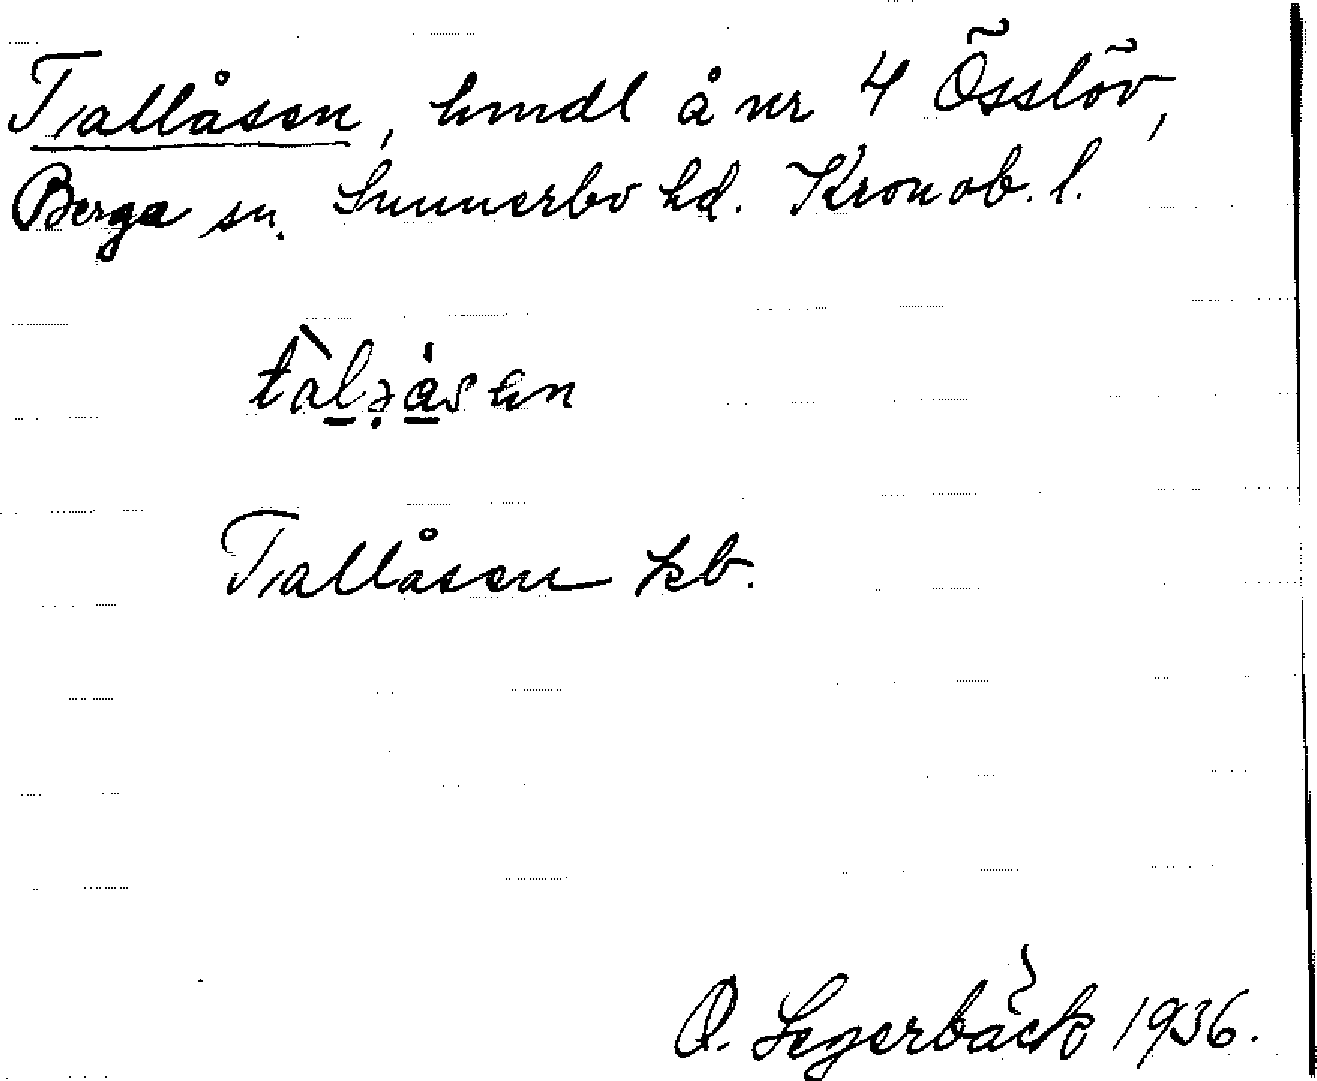 Tallåsen, hmdl å nr 4 Össlöv,
Berga sn. Sunnerbo hd. Kronob. l.
Tallåsen kb.
O. Segerbäck 1936.